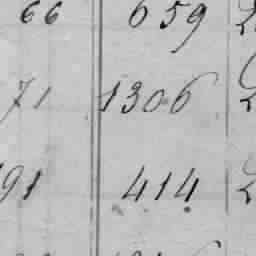 66 659
71 1306
91 414